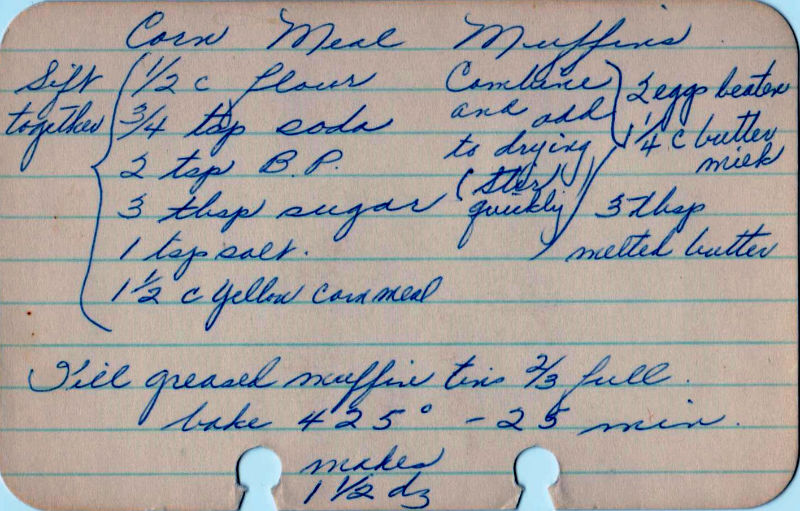 Corn Meal Muffins
Sift together
1/2 c flour
3/4 tsp soda
2 tsp B.P.
3 tbsp sugar
1 tsp salt.
1 1/2 c yellow corn meal
Combine
and add
to drying
(stir
quickly)
2 eggs beaten
1 1/4 c butter
milk
3 tbsp
melted butter
Fill greased muffin tins 2/3 full.
bake 425° - 25 min.
makes
1 1/2 dz